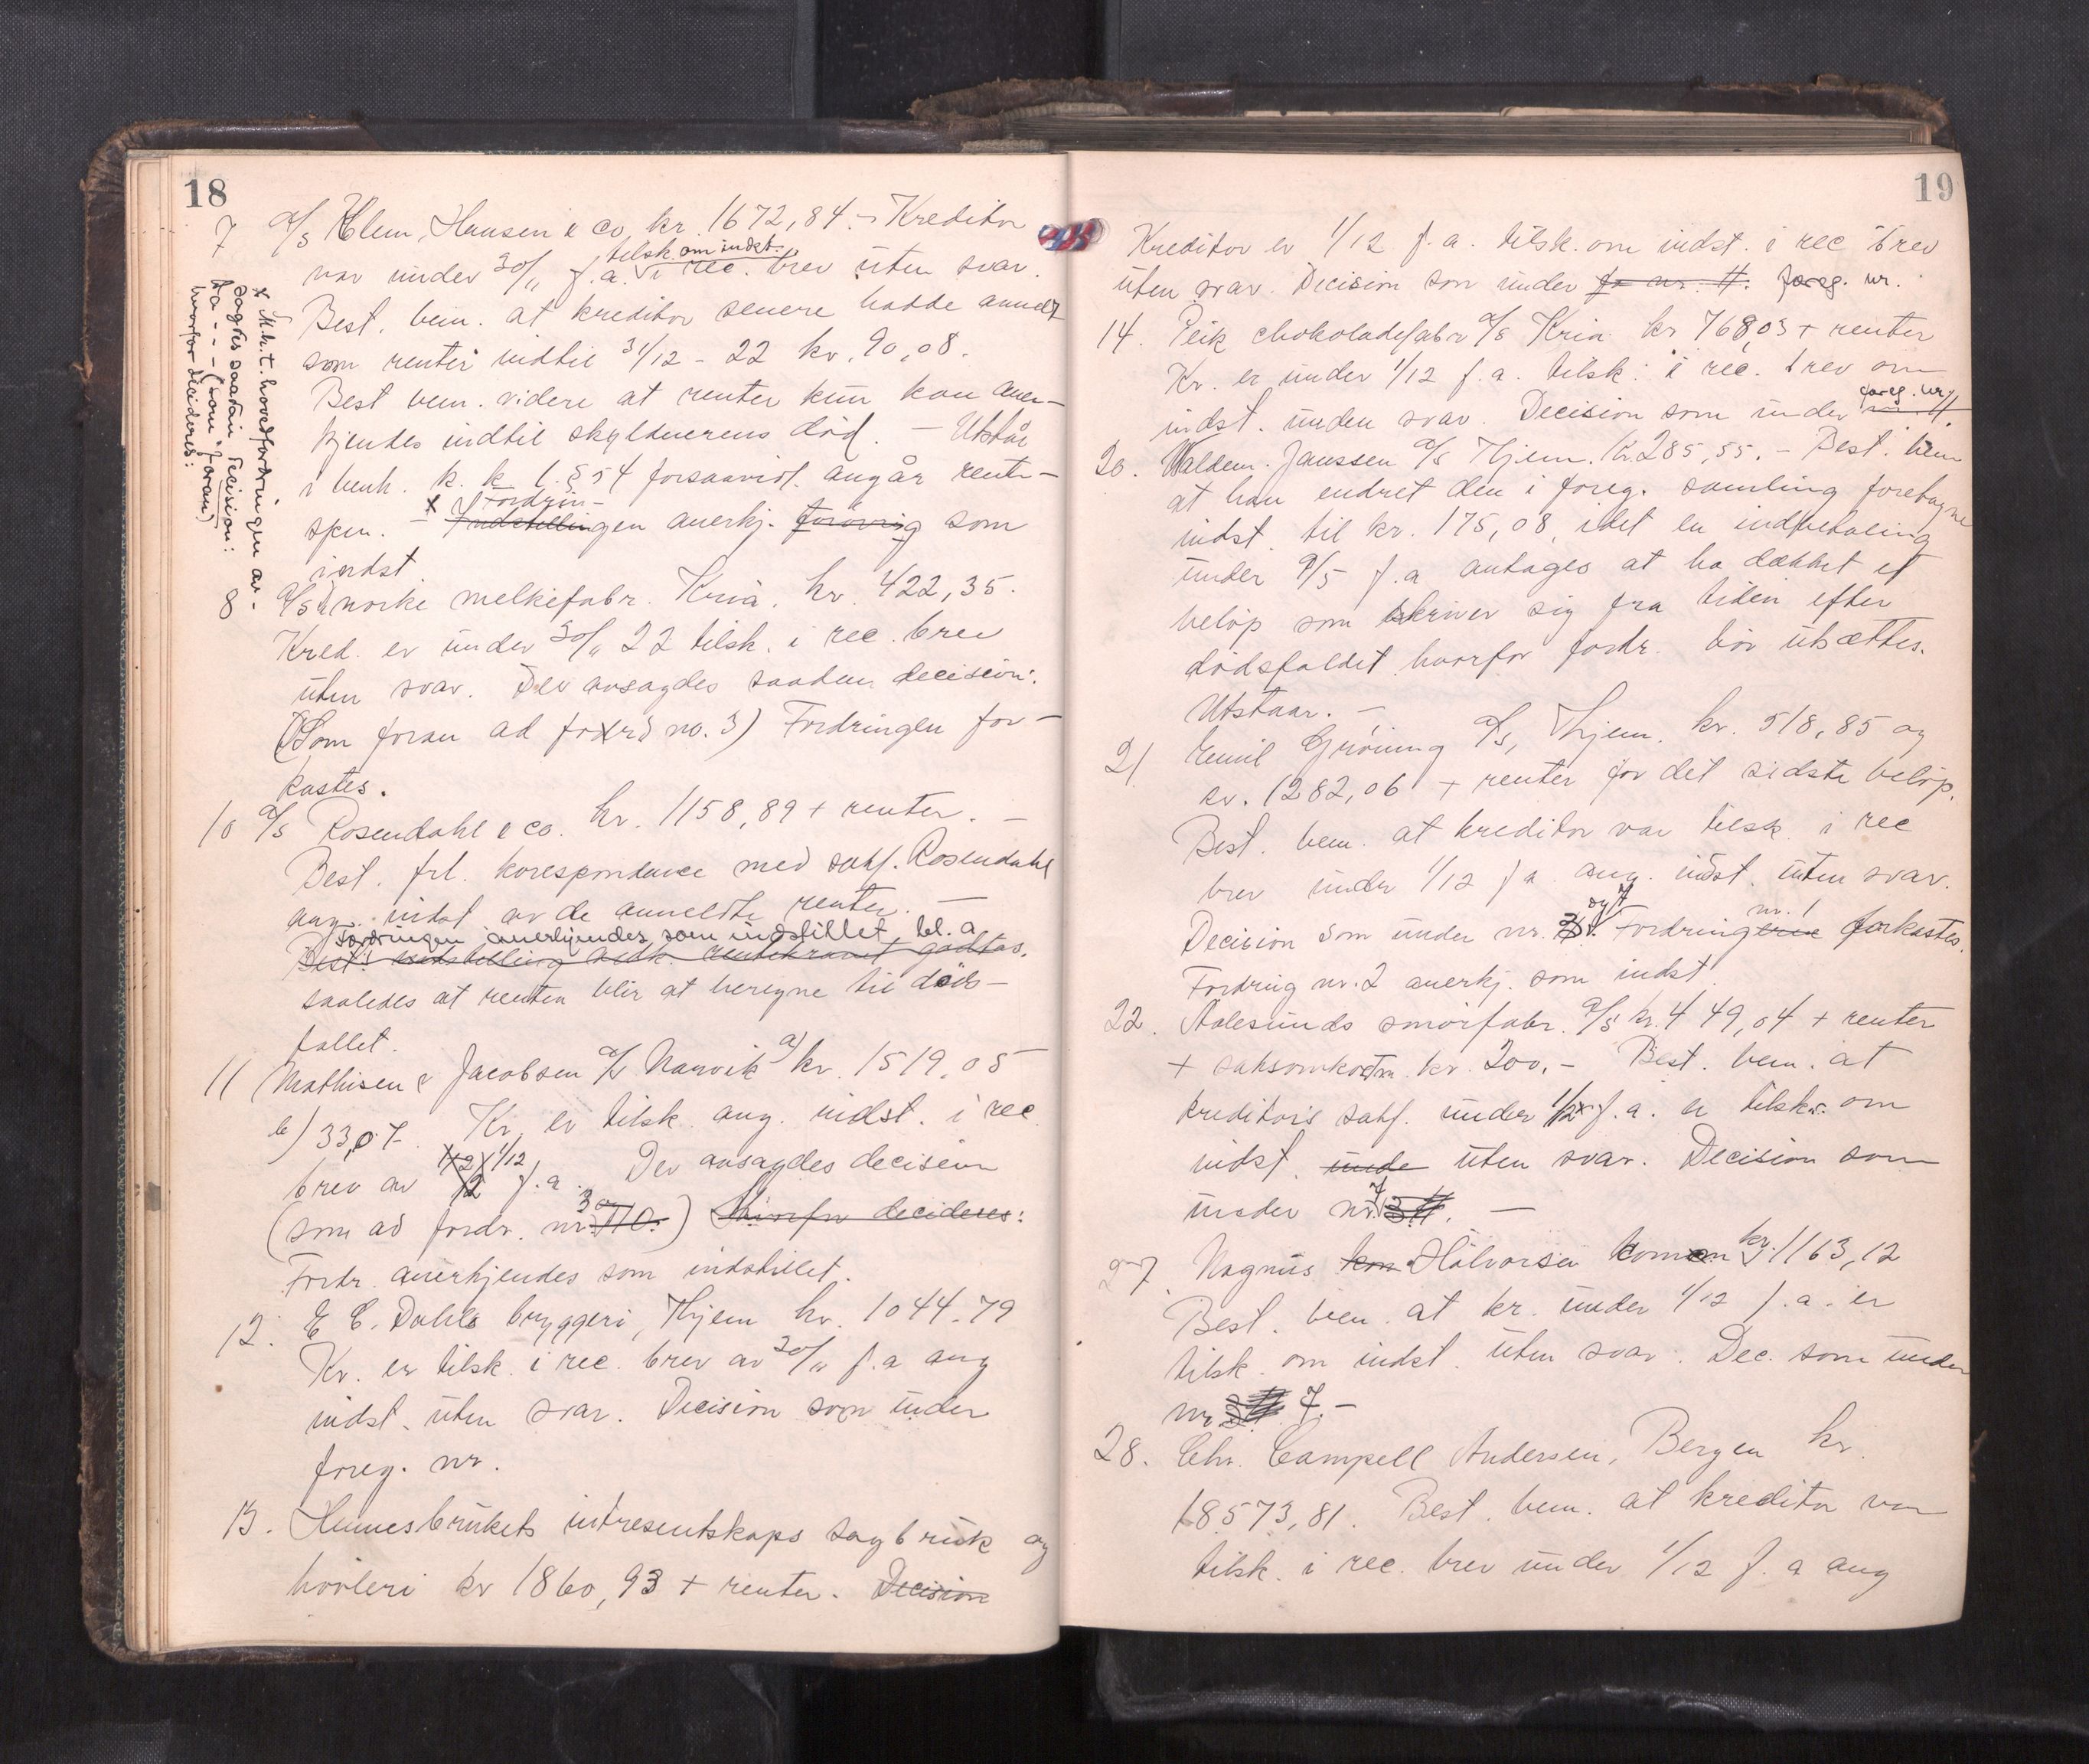 18
7 A/S Klem, Hansen & Co, kr. 1672,84. - Kreditor
var under 30/11 f.a. tilsk. om indst. i rec. brev uten svar.
Best. bem. at kreditor senere hadde anmeldt
som renter indtil 31/12 - 22 kr. 90,08.
Best bem. videre at renter kun kan aner-
kjendes indtil skyldnerens död. - Utstår
i henh. k. k. l. § 54 forsaavidt angår rente-
spm. - x Fordrin-
Indstillingen anerkj. forövrig som
indst
x M.h.t. hovedfordringen av-
sagdes saadan decision:
(som foran)
hvorfor decideres:
8 A/S norske melkefabr. Kria. kr. 422,35.
Kred. er under 30/11 22 tilsk. i rec. brev
uten svar. Der avsagdes saadan decision:
(Som foran ad fordr. no. 3) Fordringen for-
kastes.
10 A/S Rosendahl & co. kr. 1158,89 + renter. -
Best. frl. korespondance med sakf. Rosendahl
ang. indst av de anmeldte renter. -
Fordringen anerkjendes som indstillet, bl. a
Best's indstilling vedk. rentekravet godtas.
saaledes at renten blir at beregne til döds-
fallet.
11 Mathisen & Jacobsen A/S Narvik a) kr. 1519,05
b) 33,07. Kr. er tilsk. ang. indst. i rec.
brev av 1/12 f.a. Der avsagdes decision
(som ad fordr. nr. 3 ) Hvorfor decideres:
Fordr. anerkjendes som indstillet.
12. E. C. Dahls bryggeri, Thjem kr. 1044.79
Kr. er tilsk. i rec. brev av 30/11 f.a ang
indst. uten svar. Decision som under
foreg. nr.
13. Hennesbrukets intresentskaps sagbruk og
hövleri kr 1860,93 + renter. Decision
19
Kreditor er 1/12 f.a. tilsk. om indst. i rec brev
uten svar. Decision som under foreg. nr.
14. Peik chokoladefabr A/S Kria kr 768,03 + renter
Kr. er under 1/12 f.a. tilsk. i rec. brev om
indst. uuden svar. Decision som under foreg. nr.
20. Waldem. Janssen A/S Thjem. Kr. 285,55. - Best. bem
at han endret den i foreg. samling foretagne
indst. til kr. 175,08, idet en indbetaling
under 9/5 f.a antages at ha dækket et
belöp som skriver sig fra tiden efter
dödsfaldet hvorfor fordr. bör utsættes.
Utstaar. -
21 Emil Gröning A/S, Thjem. kr. 518,85 og
kr. 1282,06 + renter for det sidste belöp.
Best. bem. at kreditor var tilsk. i rec
brev under 1/12 f a ang. indst. uten svar.
Decision som under nr. 3 og 7 Fordringene nr. 1 forkastes.
Fordring nr. 2 anerkj. som indst.
22. Aalesunds smörfabr. A/S kr. 449,04 + renter
+ saksomkostn. kr. 200.- Best. bem. at
kreditors sakf. under 1/12 f.a. er tilsk. om
indst. unde uten svar. Decision som
under nr. 7 -
27. Magnus kon Halvorsen kr. 1163,12
Best. bem. at kr. under 1/12 f.a. er
tilsk. om indst. uten svar. Dec. som under
nr. 7. -
28. Chr. Campell Andersen, Bergen kr.
18573,81. Best. bem. at kreditor var
tilsk. i rec. brev under 1/12 f. a ang